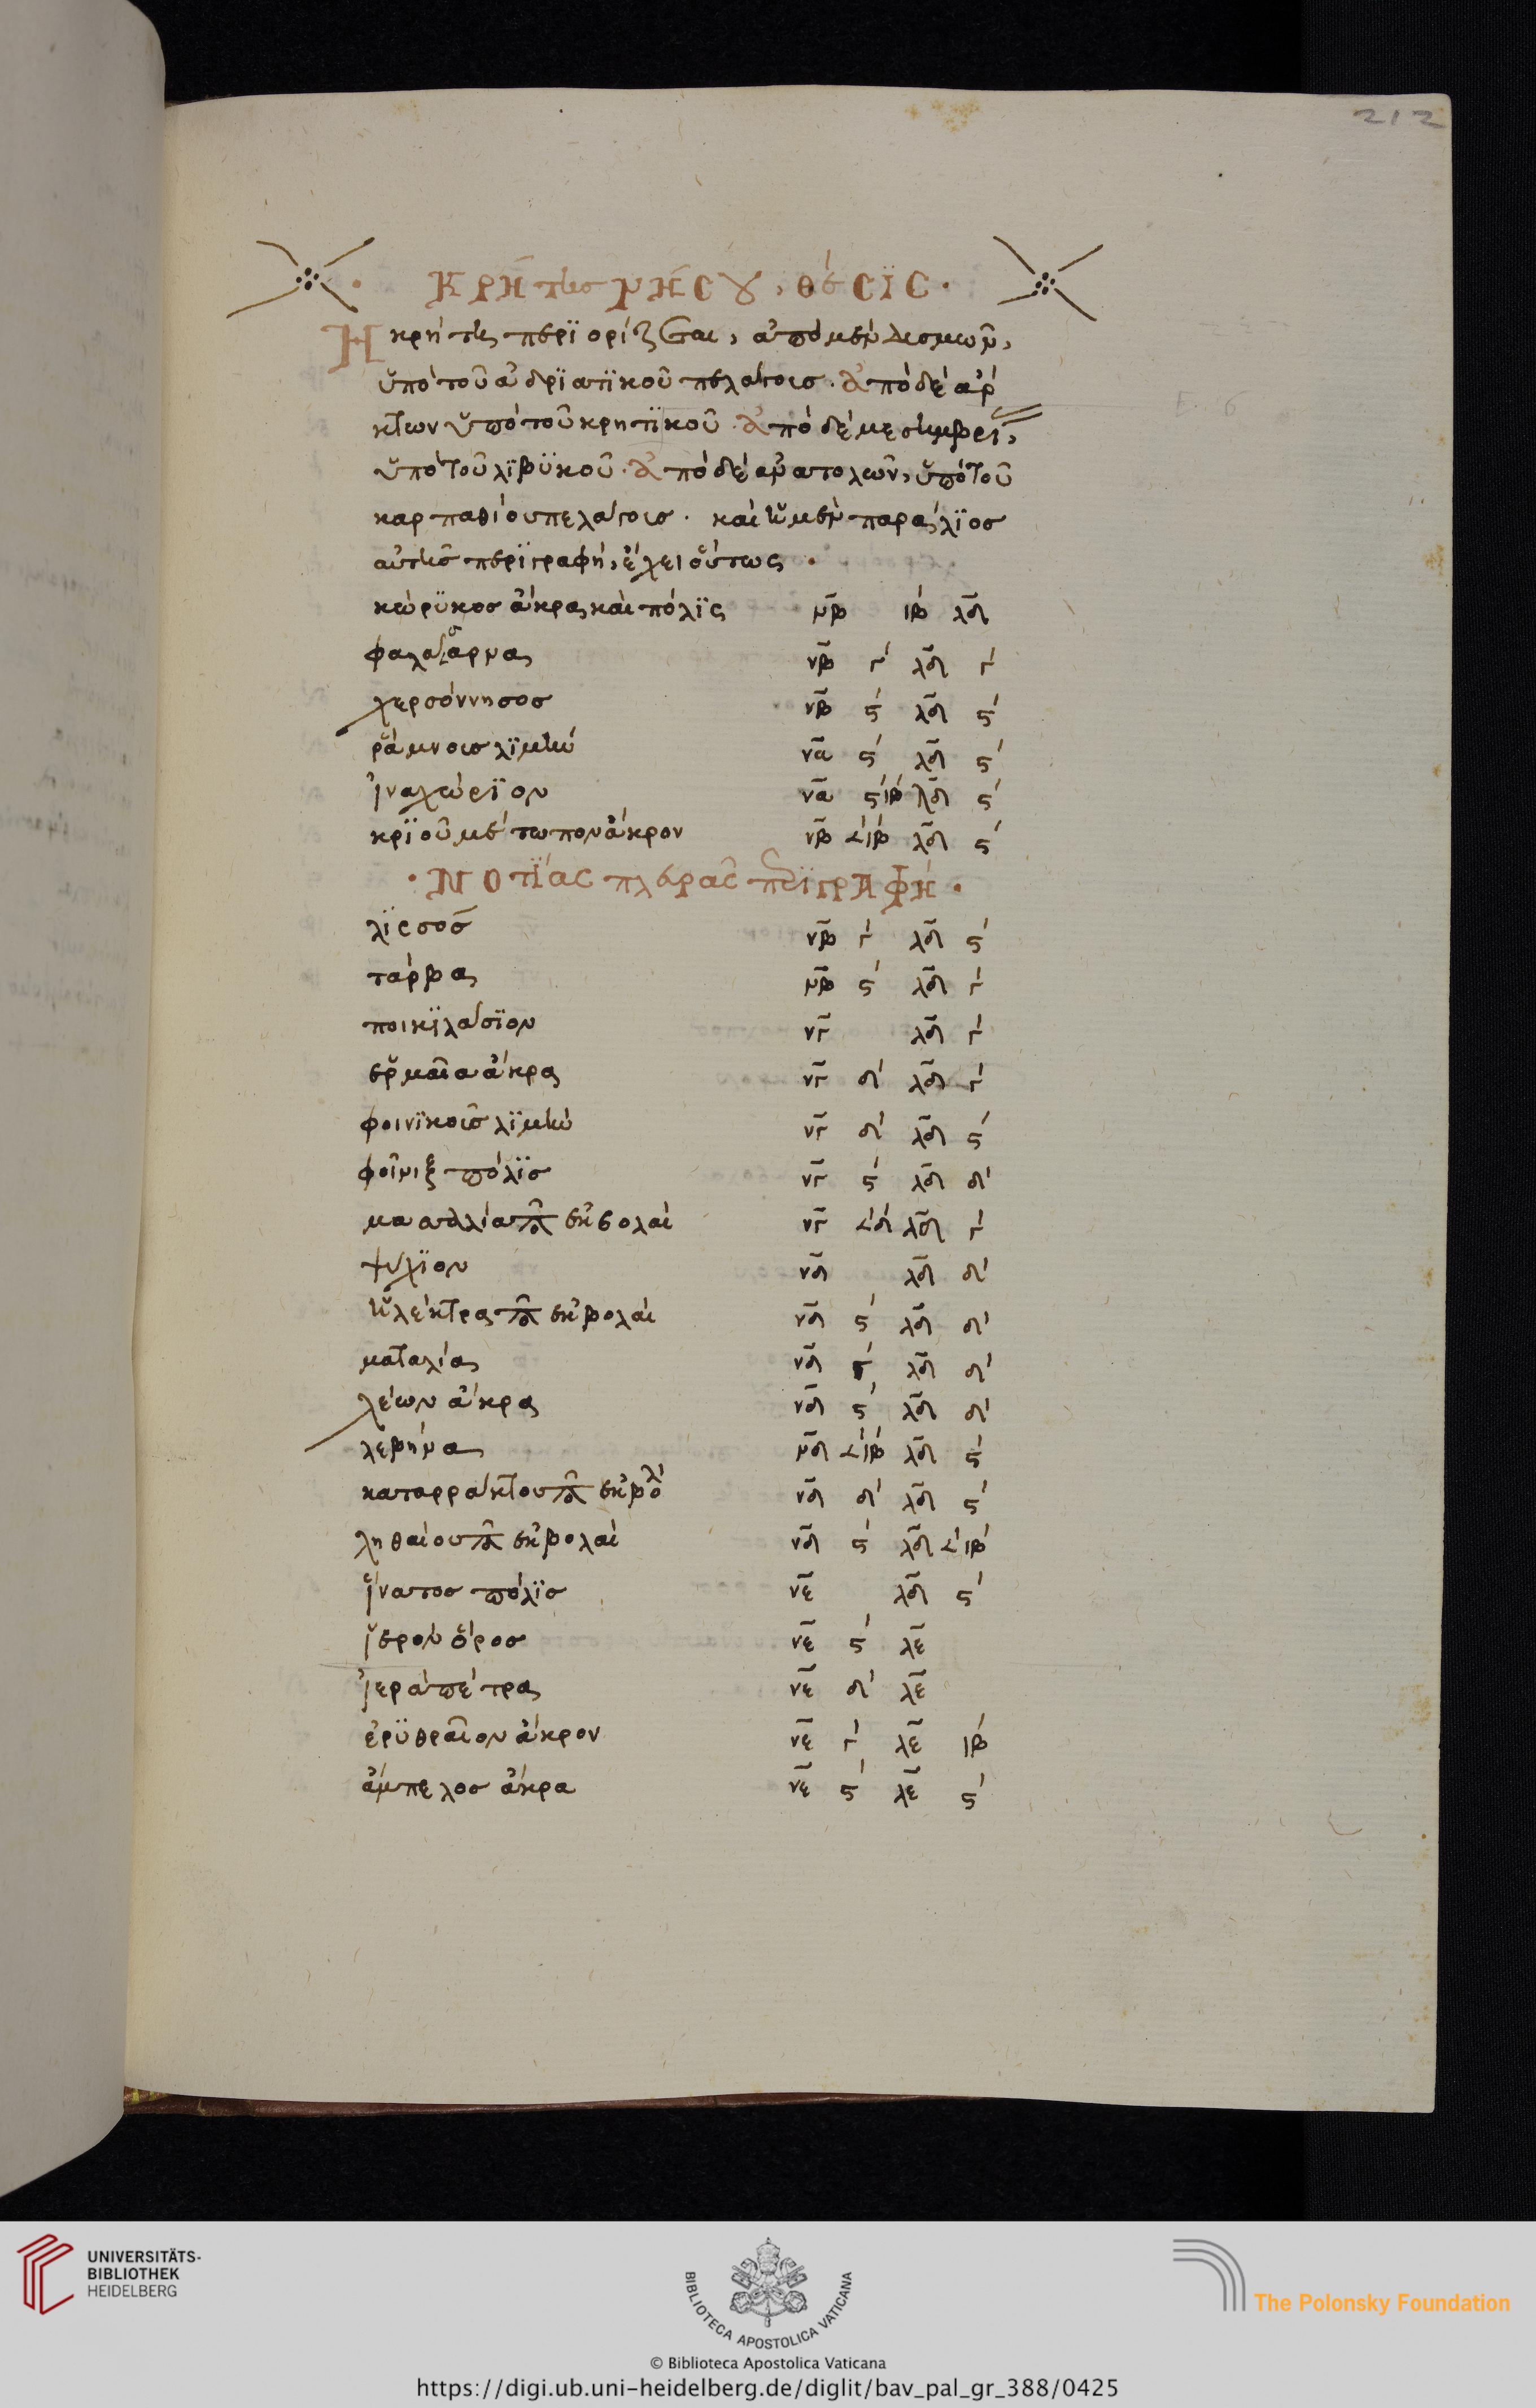 212
Κρήτης νήσου, θέσϊς.
Η κρήτης περϊορίζεται, ἀπὸ μὲν δυσμῶν,
ὑπὸ τοῦ ἀδρϊατϊκοῦ πελάγους. ἀπὸ δὲ ἄρ
κτων ὑπὸ τοῦ κρητϊκοῦ. ἀπὸ δὲ μεσημβρί,
ὑπὸ τοῦ λϊβϋκοῦ. ἀπὸ δὲ ἀνατολῶν, ὑπὸ τοῦ
καρπαθίου πελάγους. καὶ ἡ μὲν παράλϊος
αὐτῆς περϊγραφὴ, ἔχει οὕτως.
κώρϋκος ἄκρας καὶ πόλϊς νβ ιβ λδ
φαλάσαρνας νβ γ' λδ γ'
χερσόννησος νβ ς' λδ ς'
ῥάμνους λϊμὴν να ς' λδ ς'
ἰναχώρϊον να ς'ιβ' λδ ς'
κρϊοῦ μέτωπον ἄκρον νβ ∠'ιβ' λδ ς'
Νοτΐας πλερᾶς περϊγραφή.
λϊσσός νβ γ' λδ ς'
τάρβας νβ ς' λδ γ'
ποικϊλάσϊον νγ λδ γ'
ἑρμαῖα ἄκρα νγ δ' λδ γ'
φοινϊκοῦς λϊμὴν νγ δ' λδ ς'
φοῖνιξ πόλϊς νγ ς' λδ δ'
μασαλία ποτ ἐκβολαὶ νγ ∠'δ' λδ γ'
ψυχϊον νδ λδ δ'
ἠλέκτρας ποτ ἐκβολαὶ νδ ς' λδ δ'
ματαλίας νδ ς' λδ δ'
λέων ἄκρα νδ ς' λδ δ'
λεβήνα νδ ∠'ιβ' λδ ς'
καταρράκτου ποτ ἐκβολ νδ δ' λδ ς'
ληθαίου ποτ ἐκβολαὶ νδ ς' λδ ∠'ιβ'
ἴνατος πόλϊς νε λδ ς'
ἱερὸν ὄρος νε ς' λε
ἱερὰ πέτρα νε δ' λε
ἐρϋθραῖον ἄκρον νε γ' λε ιβ'
ἄμπελος ἄκρα νε ς' λε ς'
UNIVERSITÄTS-
BIBLIOTHEK
HEIDELBERG
BIBLIOTECA APOSTOLICA VATICANA
The Polonsky Foundation
© Biblioteca Apostolica Vaticana
https://digi.ub.uni-heidelberg.de/diglit/bav_pal_gr_388/0425